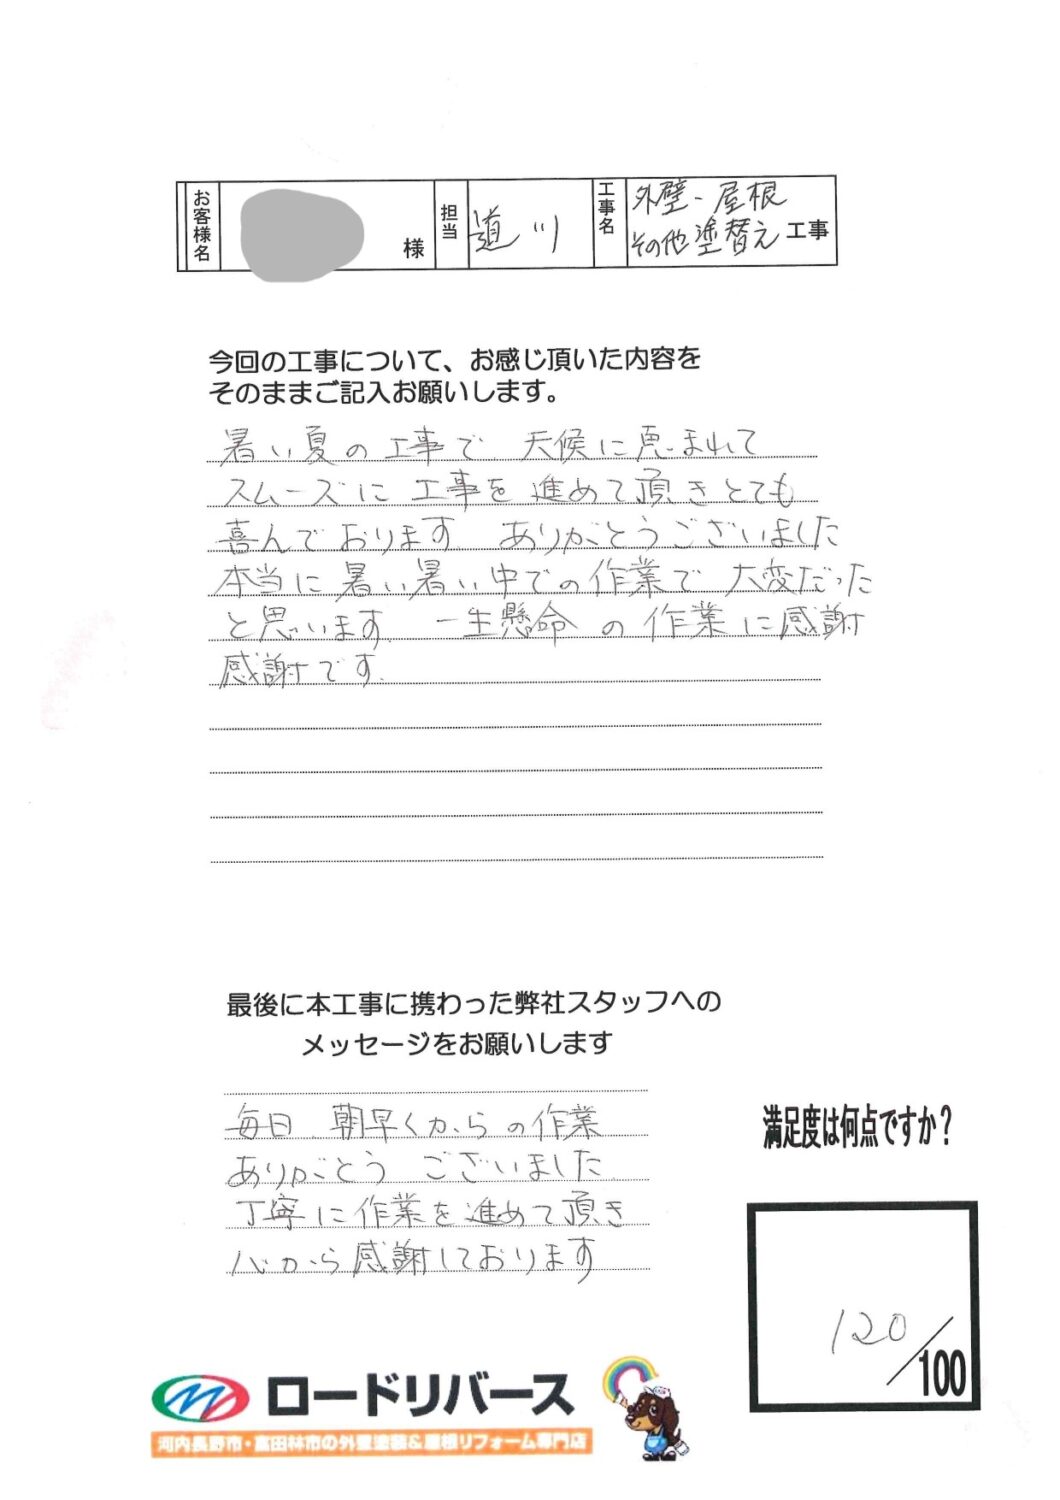 お客様名 様 担当 道川 工事名 外壁・屋根
その他塗替え 工事
今回の工事について、お感じ頂いた内容を
そのままご記入お願いします。
暑い夏の工事で 天候に恵まれて
スムーズに 工事を 進めて頂きとても
喜んでおります。ありがとうございました
本当に 暑い暑い中での作業で 大変だった
と思います。一生懸命 の 作業に感謝
感謝です。
最後に本工事に携わった弊社スタッフへの
メッセージをお願いします
毎日、朝早くからの作業
ありがとう ございました
丁寧に作業を進めて頂き
心から感謝しております
満足度は何点ですか?
120/100
ロードリバース
河内長野市・富田林市の外壁塗装&屋根リフォーム専門店